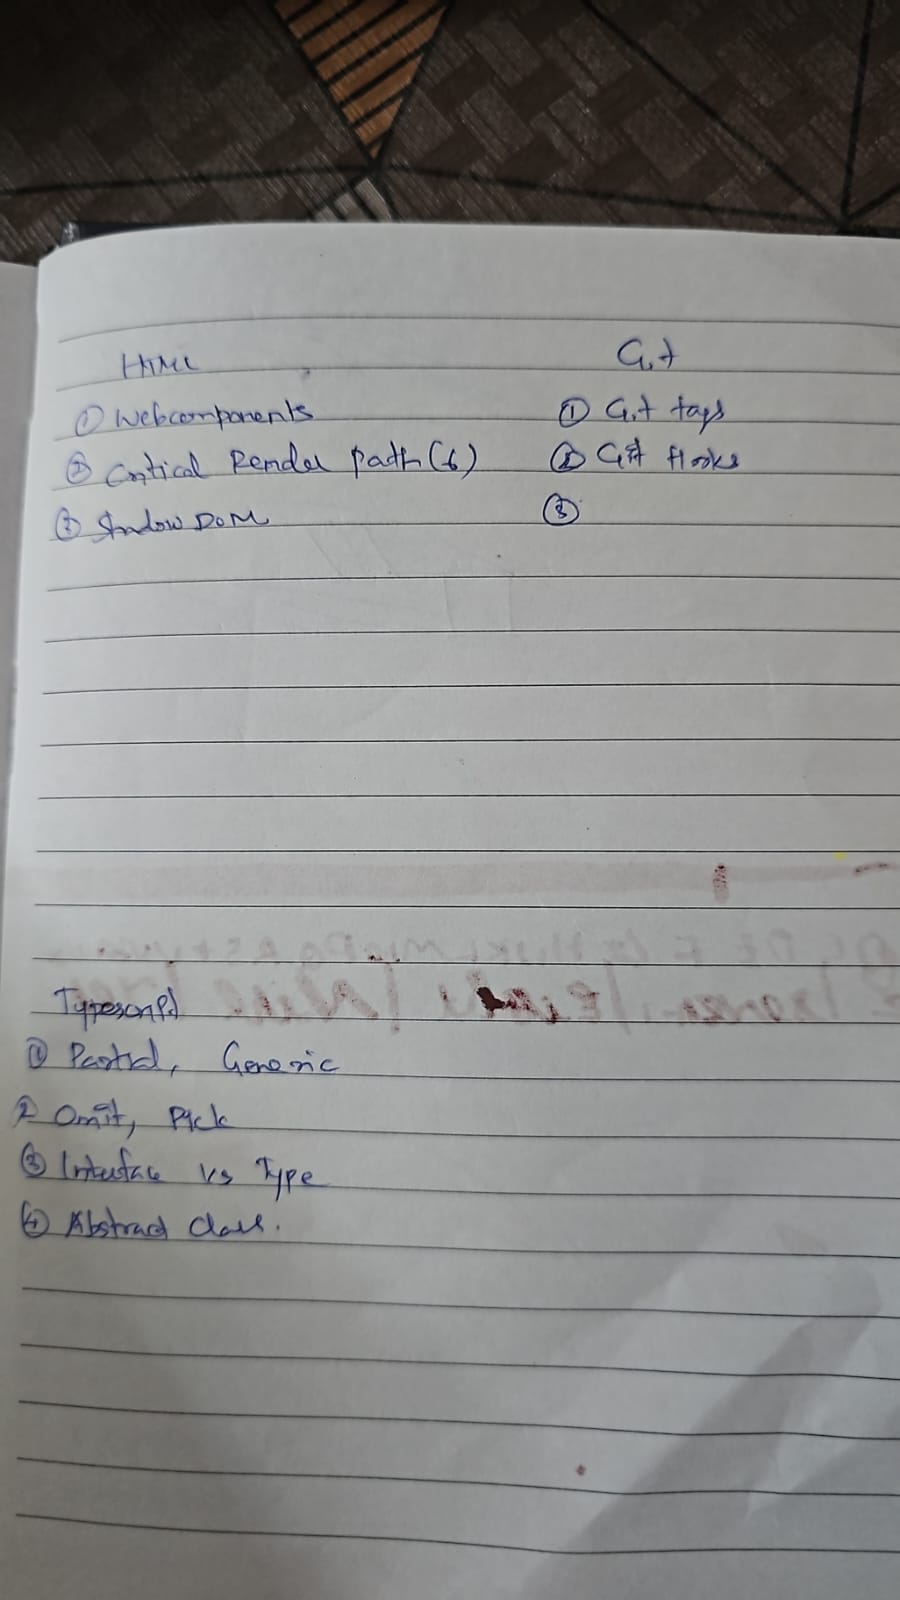 HTML
① Webcomponents
② Critical Render path (6)
③ Shadow DOM
Git
① Git tags
② Git Hooks
③
Typescript
① Partial, Generic
2 Omit, Pick
③ Interface vs Type
④ Abstract Class.